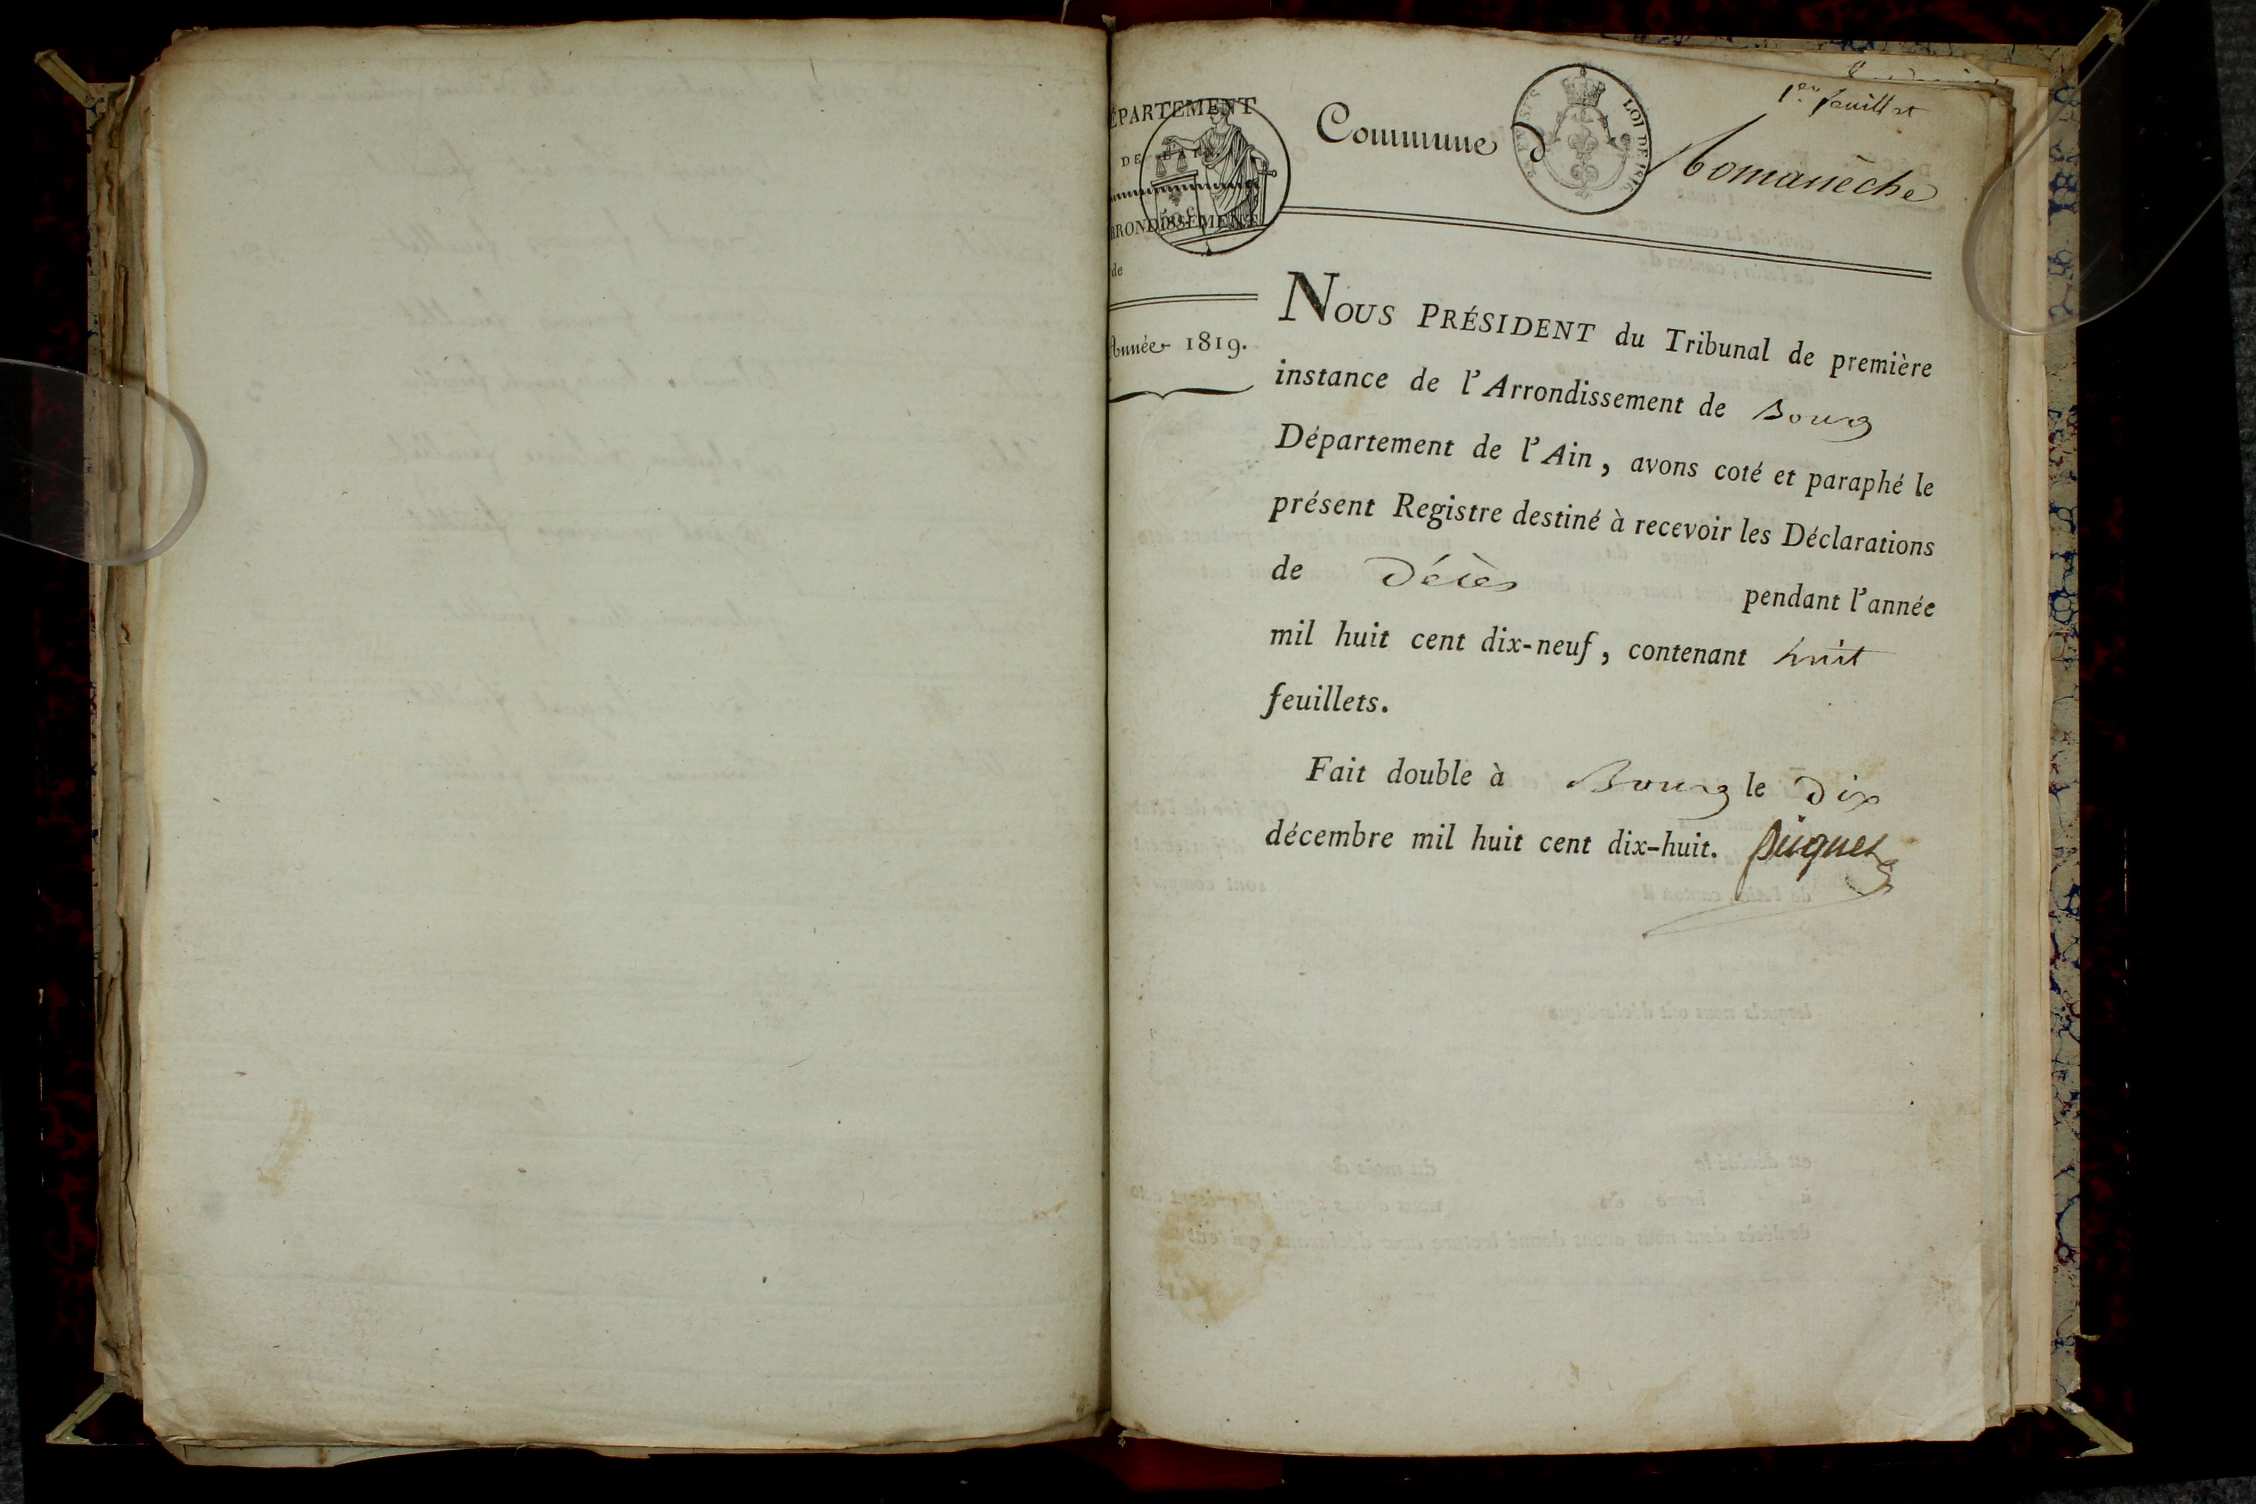 1.er feuillet
DÉPARTEMENT
DE L'AIN
ARRONDISSEMENT
de
Année 1819.
50 c
LOI DE 1816
Commune d Romanèche
NOUS PRÉSIDENT du Tribunal de première
instance de l'Arrondissement de Bourg
Département de l'Ain, avons coté et paraphé le
présent Registre destiné à recevoir les Déclarations
de Décès pendant l'année
mil huit cent dix-neuf, contenant huit
feuillets.
Fait double à Bourg le dix
décembre mil huit cent dix-huit.